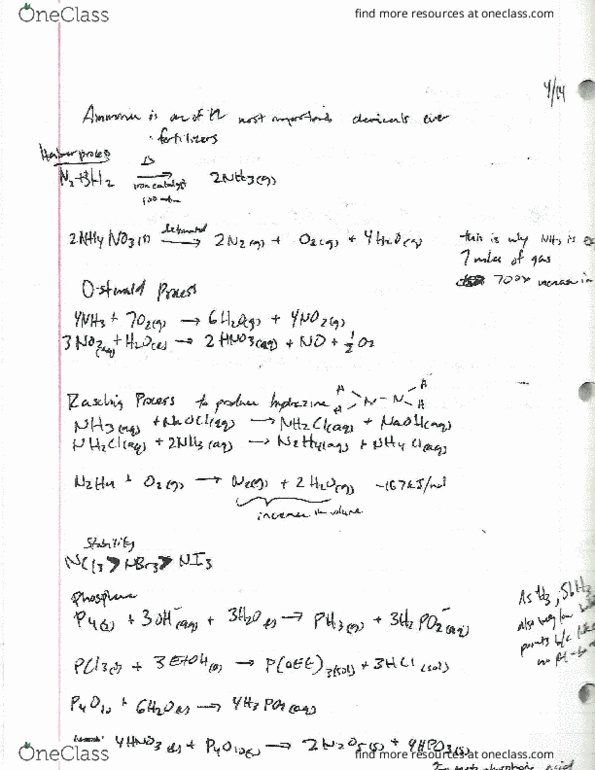 OneClass
find more resources at oneclass.com
4/14
Ammonia is one of the most important chemicals ever
· fertilizers
Haber process
Δ
N2+3H2 → 2NH3(g)
iron catalyst
2NH4NO3(s) → 2N2(g) + O2(g) + 4H2O(g)
detonated
this is why NH3 is
7 moles of gas
700x increase in
Ostwald Process
4NH3 + 7O2(g) → 6H2O(g) + 4NO2(g)
3NO2(g)+H2O(l) → 2HNO3(aq) + NO + ½O2
Rasching Process to produce hydrazine
H H
N-N
H H
NH3(aq) + NaOCl(aq) → NH2Cl(aq) + NaOH(aq)
NH2Cl(aq) + 2NH3(aq) → N2H4(aq) + NH4Cl(aq)
N2H4 + O2(g) → N2(g) + 2H2O(g)
increase in volume
Stability
NCl3 > NBr3 > NI3
Phosphine
P4(s) + 3OH-(aq) + 3H2O(l) → PH3(g) + 3H2PO2-(aq)
AsH3, SbH3
also very low
points b/c like
PCl3(l) + 3EtOH(l) → P(OEt)3(sol) + 3HCl(sol)
P4O10 + 6H2O(l) → 4H3PO4(aq)
4HNO3(l) + P4O10(s) → 2N2O5(s) + 4HPO3(s)
OneClass
find more resources at oneclass.com
acid